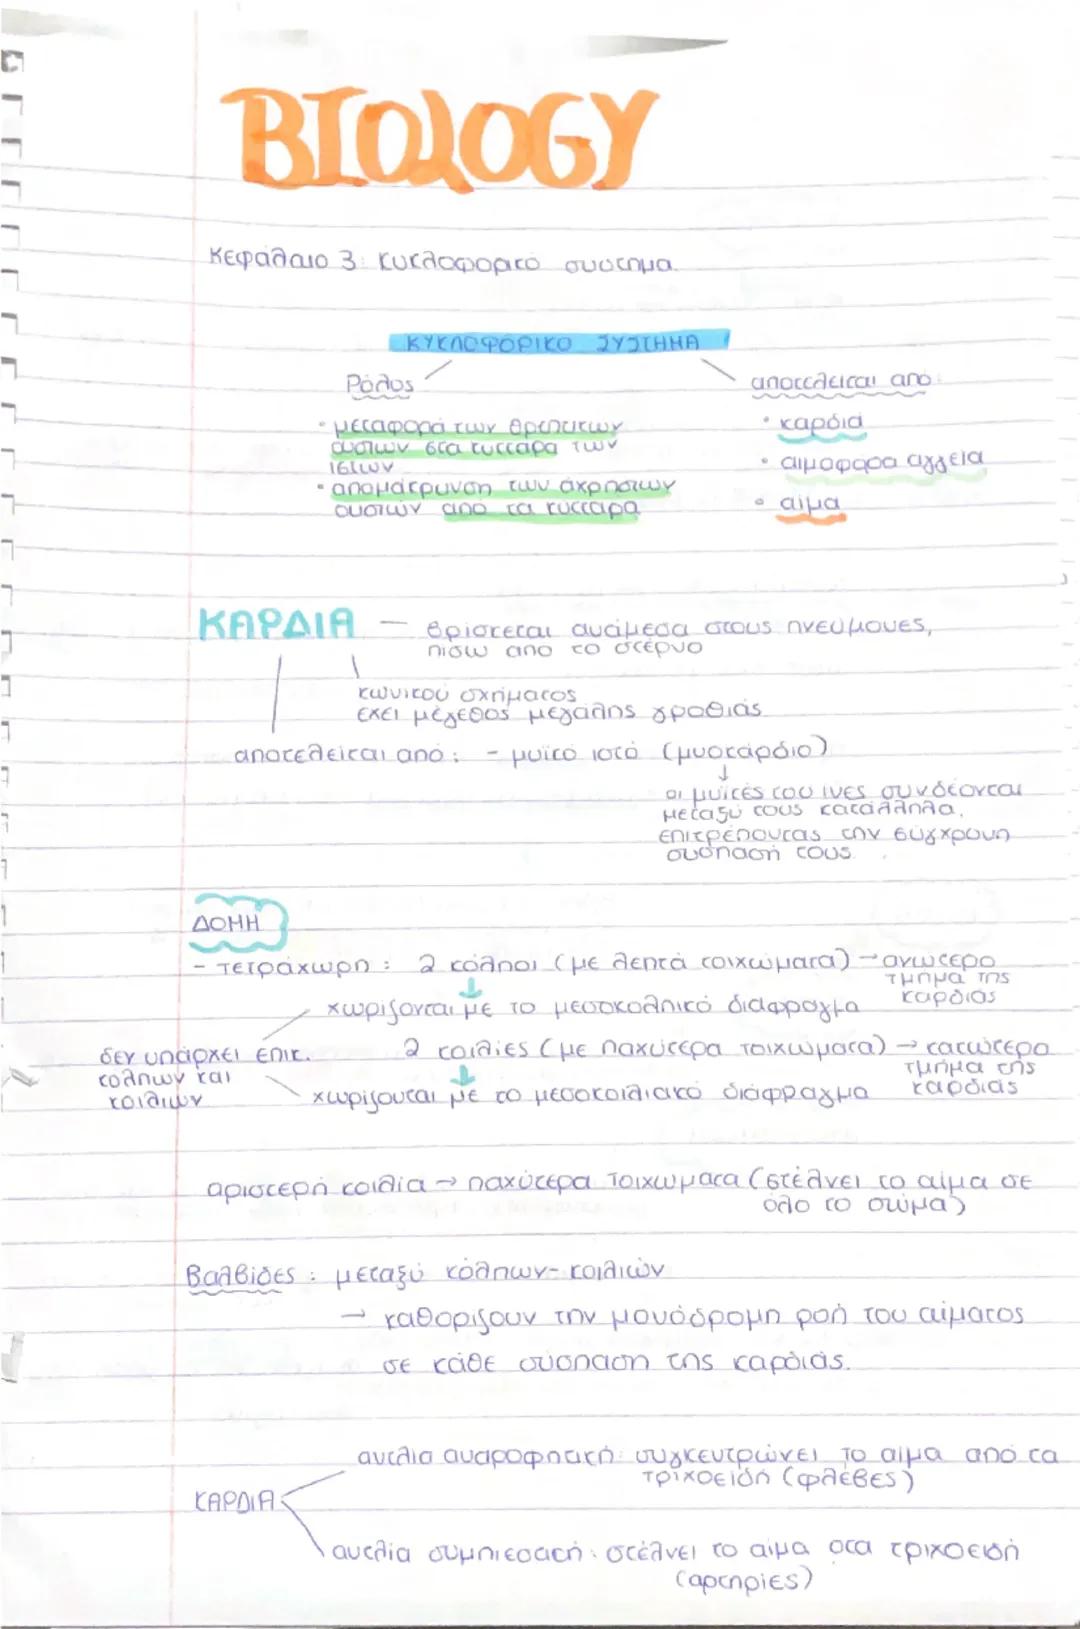 BIOLOGY
Κεφάλαιο 3: Κυκλοφορικό σύστημα.
ΚΥΚΛΟΦΟΡΙΚΟ ΣΥΣΤΗΜΑ
Ρόλος
αποτελείται από:
• μεταφορά των θρεπτικών
ουσιών στα κύτταρα των
ιστών
• απομάκρυνση των άχρηστων
ουσιών από τα κύτταρα
• καρδιά
• αιμοφόρα αγγεία
• αίμα
ΚΑΡΔΙΑ — βρίσκεται ανάμεσα στους πνεύμονες,
πίσω από το στέρνο
κωνικού σχήματος
έχει μέγεθος μεγάλης γροθιάς
αποτελείται από: - μυϊκό ιστό (μυοκάρδιο)
↓
οι μυϊκές του ίνες συνδέονται
μεταξύ τους κατάλληλα,
επιτρέποντας την σύγχρονη
συσπαση τους.
ΔΟΜΗ
- τετράχωρη: 2 κόλποι (με λεπτά τοιχώματα) → ανώτερο
τμήμα της
καρδιάς
↓
χωρίζονται με το μεσοκολπικό διάφραγμα
δεν υπάρχει επικ.
κόλπων και
κοιλιών
2 κοιλίες (με παχύτερα τοιχώματα) → κατώτερο
τμήμα της
καρδιάς
↓
χωρίζονται με το μεσοκοιλιακό διάφραγμα
αριστερή κοιλία → παχύτερα τοιχώματα (στέλνει το αίμα σε
όλο το σώμα)
Βαλβίδες: μεταξύ κόλπων-κοιλιών
→ καθορίζουν την μονόδρομη ροή του αίματος
σε κάθε σύσπαση της καρδιάς.
ΚΑΡΔΙΑ
αντλία αναροφητική: συγκεντρώνει το αίμα από τα
τριχοειδή (φλέβες)
αντλία συμπιεστική: στέλνει το αίμα στα τριχοειδή
(αρτηρίες)